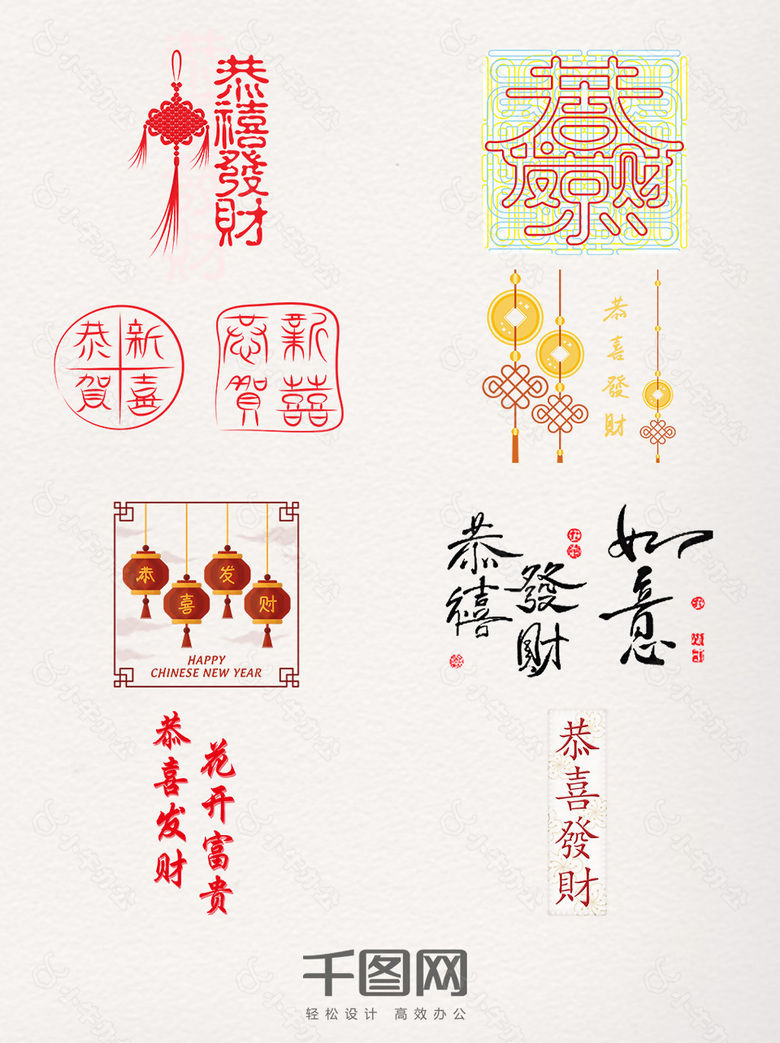 恭禧發財
恭賀
新喜
恭賀
新囍
恭喜發財
恭喜发财
HAPPY
CHINESE NEW YEAR
恭禧
發財
如意
恭喜发财
花开富贵
恭喜發財
千图网
轻松设计 高效办公